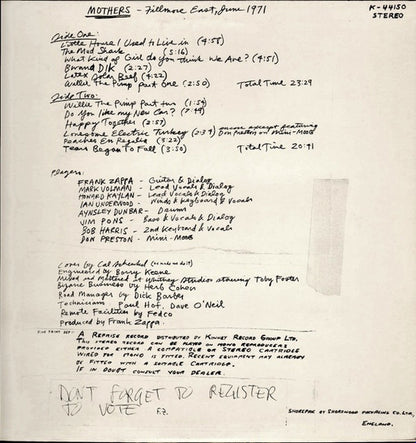 MOTHERS - Fillmore East, June 1971
K-44150
STEREO
Side One:
Little House I Used to Live in (4:58)
The Mud Shark (5:16)
What Kind of Girl do you Think We Are? (4:51)
Bwana DIK (2:27)
Latex Solar Beef (4:22)
Willie The Pimp Part One (2:50) Total Time 23:29
Side Two:
Willie The Pimp Part two (1:54)
Do You like my New Car? (7:49)
Happy Together (2:57)
Lonesome Electric Turkey (2:34) encore excerpt featuring Don Preston on Mini-Moog
Peaches En Regalia (3:22)
Tears Began To Fall (3:50) Total Time 20:41
Players:
FRANK ZAPPA - Guitar & Dialog
MARK VOLMAN - Lead Vocals & Dialog
HOWARD KAYLAN - Lead Vocals & Dialog
IAN UNDERWOOD - Winds & Keyboard & Vocals
AYNSLEY DUNBAR - Drums
JIM PONS - Bass & Vocals & Dialog
BOB HARRIS - 2nd Keyboard & Vocals
DON PRESTON - Mini-Moog
Cover by Cal Schenkel
Engineered by Barry Keene
Mixed and Mastered at Whitney Studios starring Toby Foster
Bizarre Business by Herb Cohen
Road Manager by Dick Barber
Technicians Paul Hof. Dave O'Neil
Remote Facilities by Fedco
Produced by Frank Zappa.
FINE PRINT DEPT:
A REPRISE RECORD DISTRIBUTED BY KINNEY RECORD GROUP LTD.
THIS STEREO RECORD CAN BE PLAYED ON MONO REPRODUCERS
PROVIDED EITHER A COMPATIBLE OR STEREO CARTRIDGE
WIRED FOR MONO IS FITTED. RECENT EQUIPMENT MAY ALREADY
BE FITTED WITH A SUITABLE CARTRIDGE.
IF IN DOUBT CONSULT YOUR DEALER.
DON'T FORGET TO REGISTER
TO VOTE F.Z.
SHOREPAK BY SHOREWOOD PACKAGING CO. LTD,
ENGLAND.